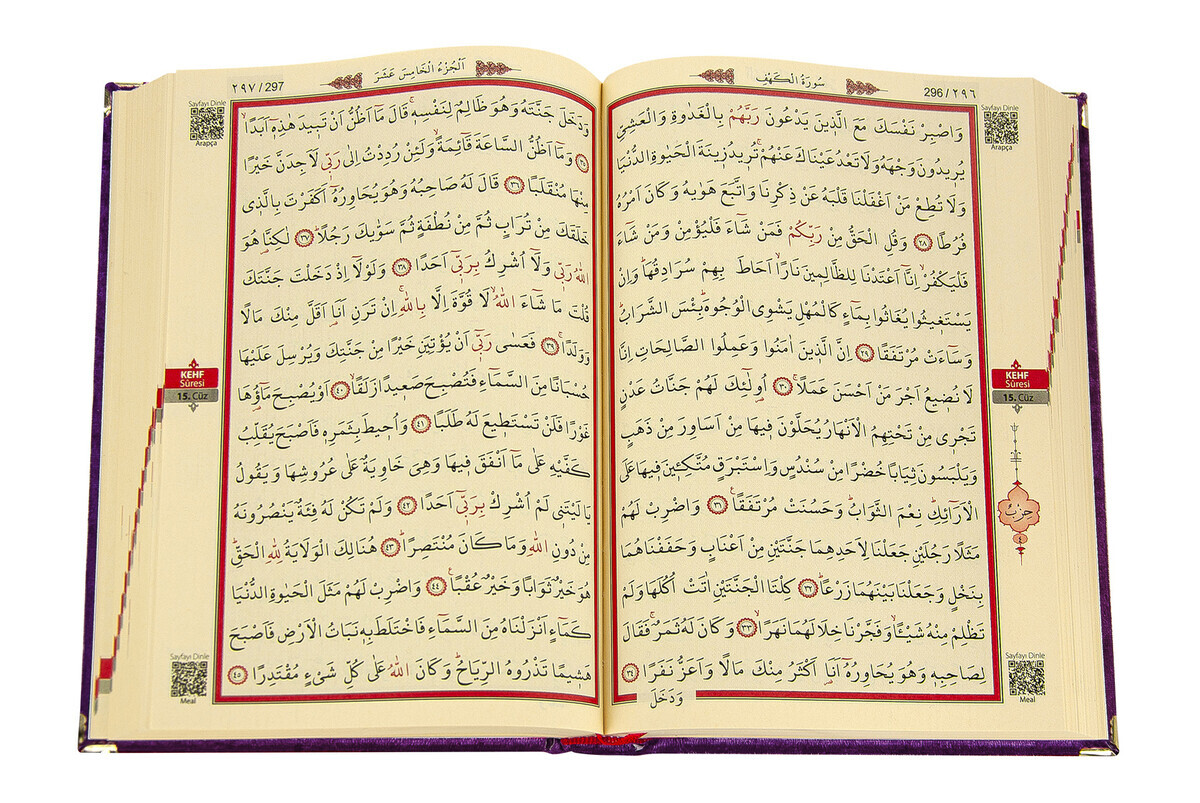 296 / ٢٩٦
سُورَةُ الْكَهْفِ
Sayfayı Dinle
Arapça
وَاصْبِرْ نَفْسَكَ مَعَ الَّذ۪ينَ يَدْعُونَ رَبَّهُمْ بِالْغَدٰوةِ وَالْعَشِيِّ
يُر۪يدُونَ وَجْهَهُ وَلَا تَعْدُ عَيْنَاكَ عَنْهُمْۚ تُر۪يدُ ز۪ينَةَ الْحَيٰوةِ الدُّنْيَا
وَلَا تُطِعْ مَنْ اَغْفَلْنَا قَلْبَهُ عَنْ ذِكْرِنَا وَاتَّبَعَ هَوٰيهُ وَكَانَ اَمْرُهُ
فُرُطًا ٢٨ وَقُلِ الْحَقُّ مِنْ رَبِّكُمْ فَمَنْ شَٓاءَ فَلْيُؤْمِنْ وَمَنْ شَٓاءَ
فَلْيَكْفُرْۙ اِنَّٓا اَعْتَدْنَا لِلظَّالِم۪ينَ نَارًاۙ اَحَاطَ بِهِمْ سُرَادِقُهَاۜ وَاِنْ
يَسْتَغ۪يثُوا يُغَاثُوا بِمَٓاءٍ كَالْمُهْلِ يَشْوِي الْوُجُوهَۜ بِئْسَ الشَّرَابُۜ
وَسَٓاءَتْ مُرْتَفَقًا ٢٩ اِنَّ الَّذ۪ينَ اٰمَنُوا وَعَمِلُوا الصَّالِحَاتِ اِنَّا
لَا نُض۪يعُ اَجْرَ مَنْ اَحْسَنَ عَمَلًاۚ ٣٠ اُو۬لٰٓئِكَ لَهُمْ جَنَّاتُ عَدْنٍ
تَجْر۪ي مِنْ تَحْتِهِمُ الْاَنْهَارُ يُحَلَّوْنَ ف۪يهَا مِنْ اَسَاوِرَ مِنْ ذَهَبٍ
وَيَلْبَسُونَ ثِيَابًا خُضْرًا مِنْ سُنْدُسٍ وَاِسْتَبْرَقٍ مُتَّكِـ۪ٔينَ ف۪يهَا عَلَى
الْاَرَٓائِكِۜ نِعْمَ الثَّوَابُۜ وَحَسُنَتْ مُرْتَفَقًا۟ ٣١ وَاضْرِبْ لَهُمْ
مَثَلًا رَجُلَيْنِ جَعَلْنَا لِاَحَدِهِمَا جَنَّتَيْنِ مِنْ اَعْنَابٍ وَحَفَفْنَاهُمَا
بِنَخْلٍ وَجَعَلْنَا بَيْنَهُمَا زَرْعًاۜ ٣٢ كِلْتَا الْجَنَّتَيْنِ اٰتَتْ اُكُلَهَا وَلَمْ
تَظْلِمْ مِنْهُ شَيْـًٔاۙ وَفَجَّرْنَا خِلَالَهُمَا نَهَرًاۙ ٣٣ وَكَانَ لَهُ ثَمَرٌۚ فَقَالَ
لِصَاحِبِه۪ وَهُوَ يُحَاوِرُهُٓ اَنَا۬ اَكْثَرُ مِنْكَ مَالًا وَاَعَزُّ نَفَرًا ٣٤
وَدَخَلَ
KEHF
Sûresi
15. Cüz
حزب
٤
Sayfayı Dinle
Meal
٢٩٧ / 297
اَلْجُزْءُ الْخَامِسَ عَشَرَ
Sayfayı Dinle
Arapça
وَدَخَلَ جَنَّتَهُ وَهُوَ ظَالِمٌ لِنَفْسِه۪ۚ قَالَ مَٓا اَظُنُّ اَنْ تَب۪يدَ هٰذِه۪ٓ اَبَدًاۙ
٣٥ وَمَٓا اَظُنُّ السَّاعَةَ قَٓائِمَةً وَلَئِنْ رُدِدْتُ اِلٰى رَبّ۪ي لَاَجِدَنَّ خَيْرًا
مِنْهَا مُنْقَلَبًا ٣٦ قَالَ لَهُ صَاحِبُهُ وَهُوَ يُحَاوِرُهُٓ اَكَفَرْتَ بِالَّذ۪ي
خَلَقَكَ مِنْ تُرَابٍ ثُمَّ مِنْ نُطْفَةٍ ثُمَّ سَوّٰيكَ رَجُلًاۜ ٣٧ لٰكِنَّا۬ هُوَ
اللّٰهُ رَبّ۪ي وَلَٓا اُشْرِكُ بِرَبّ۪ٓي اَحَدًا ٣٨ وَلَوْلَٓا اِذْ دَخَلْتَ جَنَّتَكَ
قُلْتَ مَا شَٓاءَ اللّٰهُۙ لَا قُوَّةَ اِلَّا بِاللّٰهِۚ اِنْ تَرَنِ اَنَا۬ اَقَلَّ مِنْكَ مَالًا
وَوَلَدًاۚ ٣٩ فَعَسٰى رَبّ۪ٓي اَنْ يُؤْتِيَنِ خَيْرًا مِنْ جَنَّتِكَ وَيُرْسِلَ عَلَيْهَا
حُسْبَانًا مِنَ السَّمَٓاءِ فَتُصْبِحَ صَع۪يدًا زَلَقًاۙ ٤٠ اَوْ يُصْبِحَ مَٓاؤُ۬هَا
غَوْرًا فَلَنْ تَسْتَط۪يعَ لَهُ طَلَبًا ٤١ وَاُح۪يطَ بِثَمَرِه۪ فَاَصْبَحَ يُقَلِّبُ
كَفَّيْهِ عَلٰى مَٓا اَنْفَقَ ف۪يهَا وَهِيَ خَاوِيَةٌ عَلٰى عُرُوشِهَا وَيَقُولُ
يَا لَيْتَن۪ي لَمْ اُشْرِكْ بِرَبّ۪ٓي اَحَدًا ٤٢ وَلَمْ تَكُنْ لَهُ فِئَةٌ يَنْصُرُونَهُ
مِنْ دُونِ اللّٰهِ وَمَا كَانَ مُنْتَصِرًاۜ ٤٣ هُنَالِكَ الْوَلَايَةُ لِلّٰهِ الْحَقِّۜ
هُوَ خَيْرٌ ثَوَابًا وَخَيْرٌ عُقْبًا۟ ٤٤ وَاضْرِبْ لَهُمْ مَثَلَ الْحَيٰوةِ الدُّنْيَا
كَمَٓاءٍ اَنْزَلْنَاهُ مِنَ السَّمَٓاءِ فَاخْتَلَطَ بِه۪ نَبَاتُ الْاَرْضِ فَاَصْبَحَ
هَش۪يمًا تَذْرُوهُ الرِّيَاحُۜ وَكَانَ اللّٰهُ عَلٰى كُلِّ شَيْءٍ مُقْتَدِرًا ٤٥
KEHF
Sûresi
15. Cüz
Sayfayı Dinle
Meal